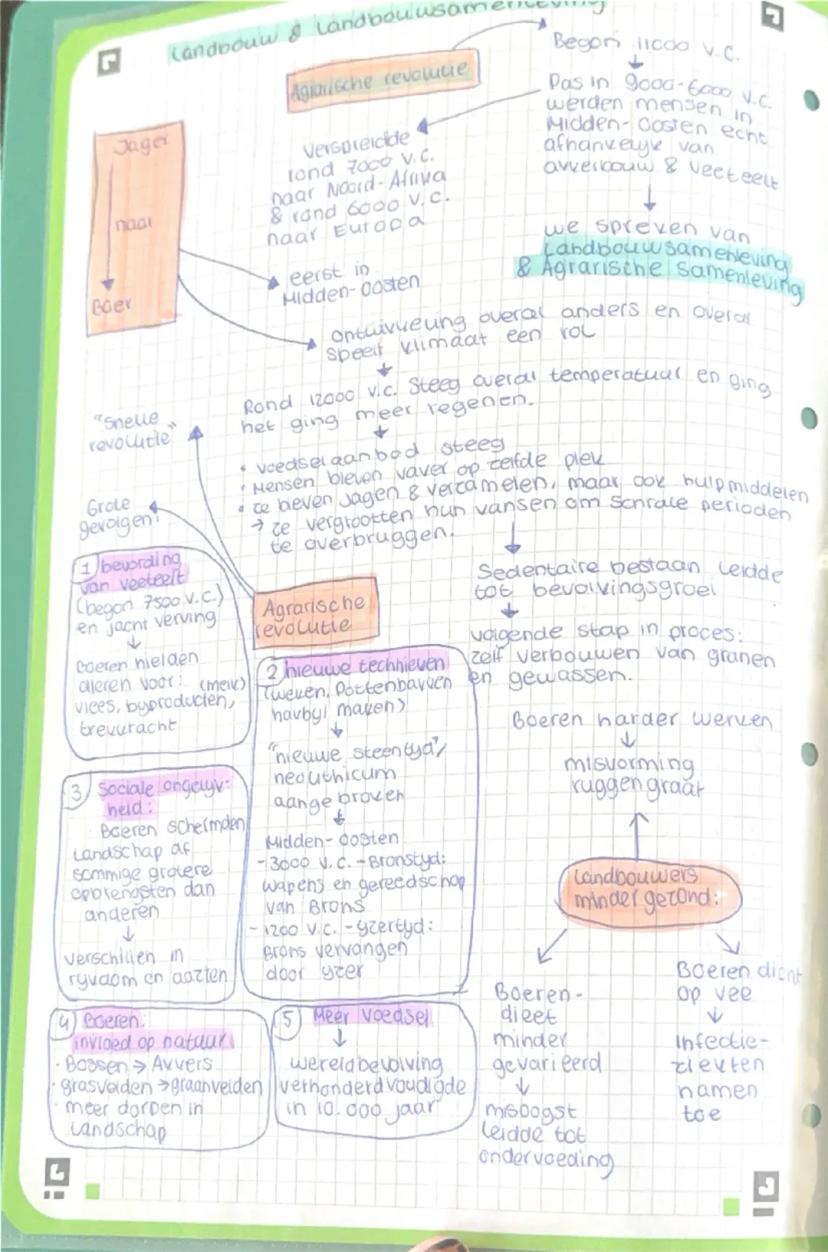 Landbouw & Landbouwsamenleving
Agrarische revolutie
Begon 11000 v.C.
Pas in 9000-6000 v.C.
werden mensen in
Midden-Oosten echt
afhankelijk van
akkerbouw & veeteelt
we spreken van
Landbouwsamenleving
& Agrarische samenleving
Verspreidde
rond 7000 v.C.
naar Noord-Afrika
& rond 6000 v.C.
naar Europa
Jager
naar
Boer
eerst in
Midden-Oosten
ontwikkeling overal anders en overal
speelt klimaat een rol
Rond 12000 v.C. steeg overal temperatuur en ging
het ging meer regenen.
• voedselaanbod steeg
• Mensen bleven vaker op zelfde plek
• ze bleven jagen & verzamelen, maar ook hulpmiddelen
→ ze vergrootten hun kansen om schrale perioden
te overbruggen.
"Snelle
revolutie"
Grote
gevolgen!
Agrarische
revolutie
Sedentaire bestaan leidde
tot bevolkingsgroei
volgende stap in proces:
zelf verbouwen van granen
en gewassen.
1 bevording
van veeteelt
(begon 7500 v.C.)
en jacht verving
Boeren hielden
dieren voor: (melk)
vlees, byproducten,
trekkracht
2 nieuwe technieken
(weken, Pottenbakken
havbyl maken)
"nieuwe steentyd"/
neolithicum
aangebroken
Midden-Oosten
- 3000 v.C. - Bronstyd:
wapens en gereedschap
van Brons
- 1200 v.C. - Yzertyd:
Brons vervangen
door yzer
3 Sociale ongelijk-
heid:
Boeren schermden
Landschap af
sommige grotere
opbrengsten dan
anderen
verschillen in
rykdom en aazien
4 Boeren:
invloed op natuur
• Bossen → Akkers
• grasvelden → graanvelden
• meer dorpen in
Landschap
5 Meer voedsel
wereldbevolking
verhonderdvoudigde
in 10.000 jaar
Boeren harder werken
misvorming
ruggengraat
Landbouwers
minder gezond:
Boeren-
dieet
minder
gevarieerd
misoogst
leidde tot
ondervoeding
Boeren dicht
op vee
Infectie-
ziekten
namen
toe